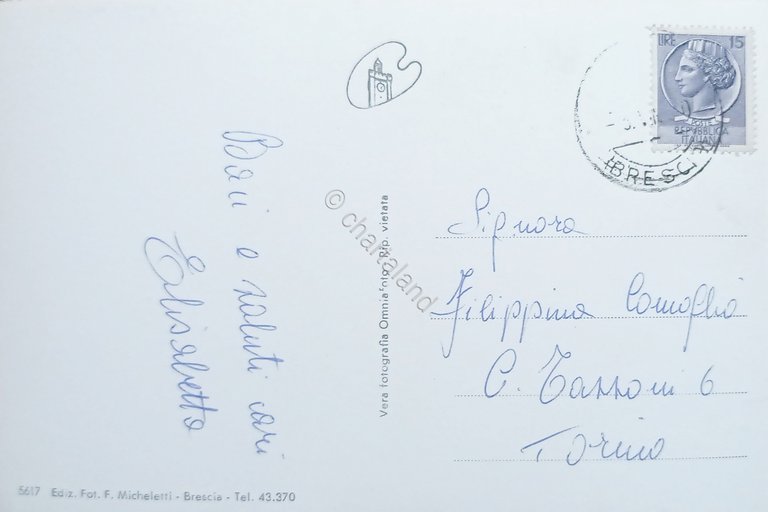 LIRE 15
REPUBBLICA
ITALIANA
BRESCIA
Baci e saluti cari
Elisabetta
© chartaland
Vera fotografia Omniafoto Rip. vietata
Signora
Filippina Comoglio
C. Tassoni 6
Torino
5617 Ediz. Fot. F. Micheletti - Brescia - Tel. 43.370